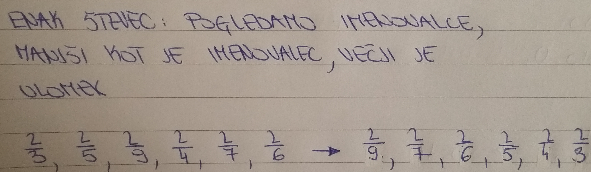 ENAK ŠTEVEC: POGLEDAMO IMENOVALCE,
MANJŠI KOT JE IMENOVALEC, VEČJI JE
ULOMEK
2/3, 2/5, 2/9, 2/4, 2/7, 2/6 → 2/9, 2/7, 2/6, 2/5, 2/4, 2/3